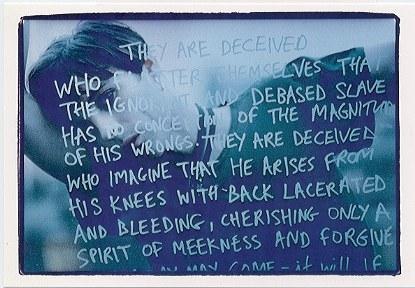 THEY ARE DECEIVED
WHO FLATTER THEMSELVES THAT
THE IGNORANT AND DEBASED SLAVE
HAS NO CONCEPTION OF THE MAGNITU
OF HIS WRONGS. THEY ARE DECEIVED
WHO IMAGINE THAT HE ARISES FROM
HIS KNEES WITH BACK LACERATED
AND BLEEDING, CHERISHING ONLY A
SPIRIT OF MEEKNESS AND FORGIVE
MAY COME - it will IF